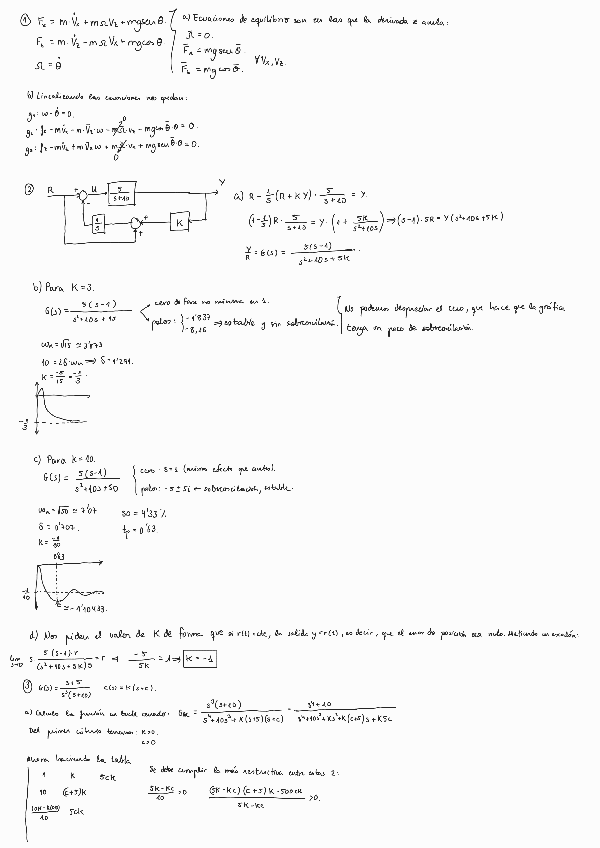 ① Fx = m V̇x + m Ω Vz + mg sen θ.
Fz = m · V̇z − m Ω Vx + mg cos θ
Ω = θ̇
a) Ecuaciones de equilibrio son en las que la derivada se anula:
Ω = 0.
F̄x = mg sen θ̄. ∀ Vx, Vz.
F̄z = mg cos θ̄.
b) Linealizando las ecuaciones nos quedan:
② R + U 5/(s+10) Y
1/s + + K
a) R − 1/s (R + KY) · 5/(s+10) = Y.
(1 − 1/s) R · 5/(s+10) = Y · (1 + 5K/(s²+10s)) ⇒ (s−1) · 5R = Y (s²+10s+5K)
Y/R = G(s) = 5(s−1)/(s²+10s+5K).
b) Para K = 3.
G(s) = 5(s−1)/(s²+10s+15)
cero de fase no mínima en 1.
polos: −1'837 −8,16 ⇒ estable y sin sobreoscilación.
No podemos despreciar el cero, que hace que la gráfica
tenga un poco de sobreoscilación.
ωn = √15 ≈ 3'873
10 = 2δ·ωn ⇒ δ = 1'291.
K = −5/15 = −1/3.
−1/3
c) Para K = 10.
G(s) = 5(s−1)/(s²+10s+50)
cero: s = 1 (mismo efecto que antes).
polos: −5 ± 5i ← sobreoscilación, estable.
ωn = √50 ≈ 7'07 SO = 4'33 %
δ = 0'707. tp = 0'63.
K = −1/10
0'63
−1/10
≈ −1'10433.
d) Nos piden el valor de K de forma que si r(t) = cte, la salida y = r(t), es decir, que el error de posición sea nulo. Metiendo un escalón:
lim s→0 s 5(s−1)·r/((s²+10s+5K)s) = r ⇒ −5/5K = 1 ⇒ K = −1
③ G(s) = (s+5)/(s²(s+10)) C(s) = K(s+c).
a) Calculo la función en bucle cerrado: GBC = s²(s+10)/(s³+10s²+K(s+5)(s+c))
Del primer criterio tenemos: K>0.
c>0
Ahora haciendo la tabla
1 K 5cK
10 (c+5)K
5cK
Se debe cumplir la más restrictiva entre estas 2:
(5K − Kc)/10 > 0 ((5K − Kc)(c+5)K − 500cK)/(5K − Kc) > 0.